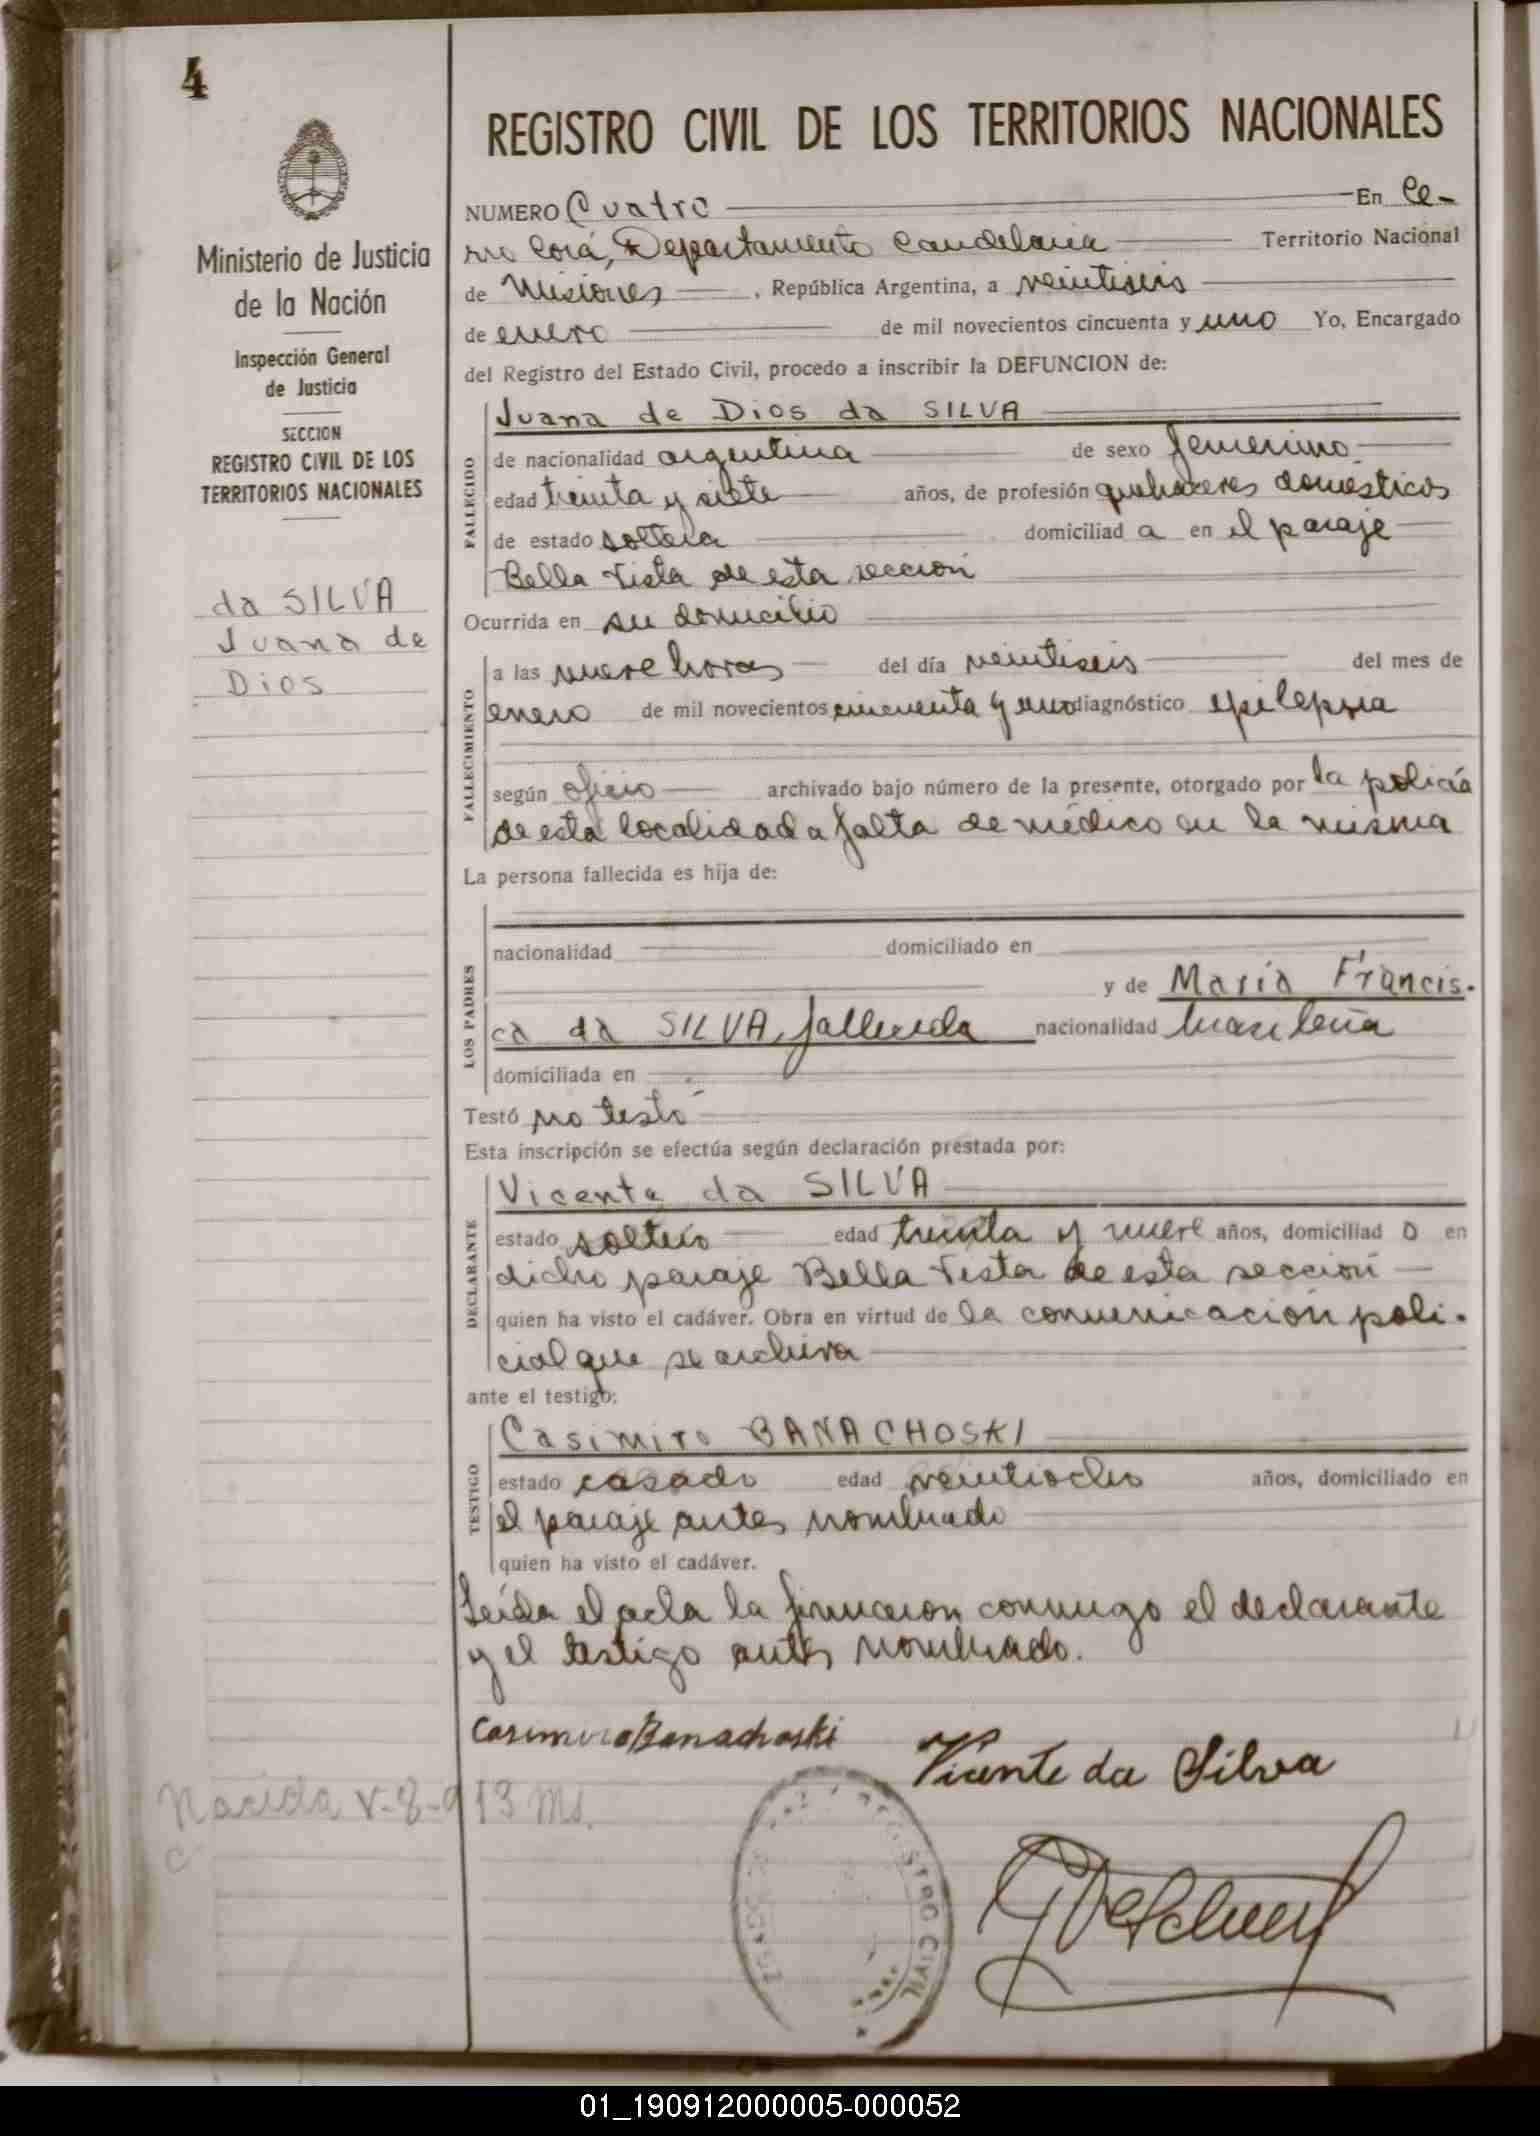 4
Ministerio de Justicia
de la Nación
Inspección General
de Justicia
SECCION
REGISTRO CIVIL DE LOS
TERRITORIOS NACIONALES
da SILVA
Juana de
Dios
REGISTRO CIVIL DE LOS TERRITORIOS NACIONALES
NUMERO Cuatro En Ce-
rro Corá, Departamento Candelaria Territorio Nacional
de Misiones, República Argentina, a veintiseis
de enero de mil novecientos cincuenta y uno Yo, Encargado
del Registro del Estado Civil, procedo a inscribir la DEFUNCION de:
FALLECIDO
Juana de Dios da SILVA
de nacionalidad argentina de sexo femenino
edad treinta y siete años, de profesión quehaceres domésticos
de estado soltera domiciliad a en el paraje
Bella Vista de esta sección
Ocurrida en su domicilio
FALLECIMIENTO
a las nueve horas del día veintiseis del mes de
enero de mil novecientos cincuenta y uno diagnóstico epilepsia
según oficio archivado bajo número de la presente, otorgado por la policía
de esta localidad a falta de médico en la misma
La persona fallecida es hija de:
LOS PADRES
nacionalidad domiciliado en
y de María Francis-
ca da SILVA, fallecida nacionalidad brasileña
domiciliada en
Testó no testó
Esta inscripción se efectúa según declaración prestada por:
DECLARANTE
Vicente da SILVA
estado soltero edad treinta y nueve años, domiciliad o en
dicho paraje Bella Vista de esta sección
quien ha visto el cadáver. Obra en virtud de la comunicación poli-
cial que se archiva
ante el testigo:
TESTIGO
Casimiro BANACHOSKI
estado casado edad veintiocho años, domiciliado en
el paraje antes nombrado
quien ha visto el cadáver.
Leída el acta la firmaron conmigo el declarante
y el testigo antes nombrado.
Casimiro Banachoski
Vicente da Silva
Nacida v-8-913 Ms.
STRO CIVIL
01_190912000005-000052